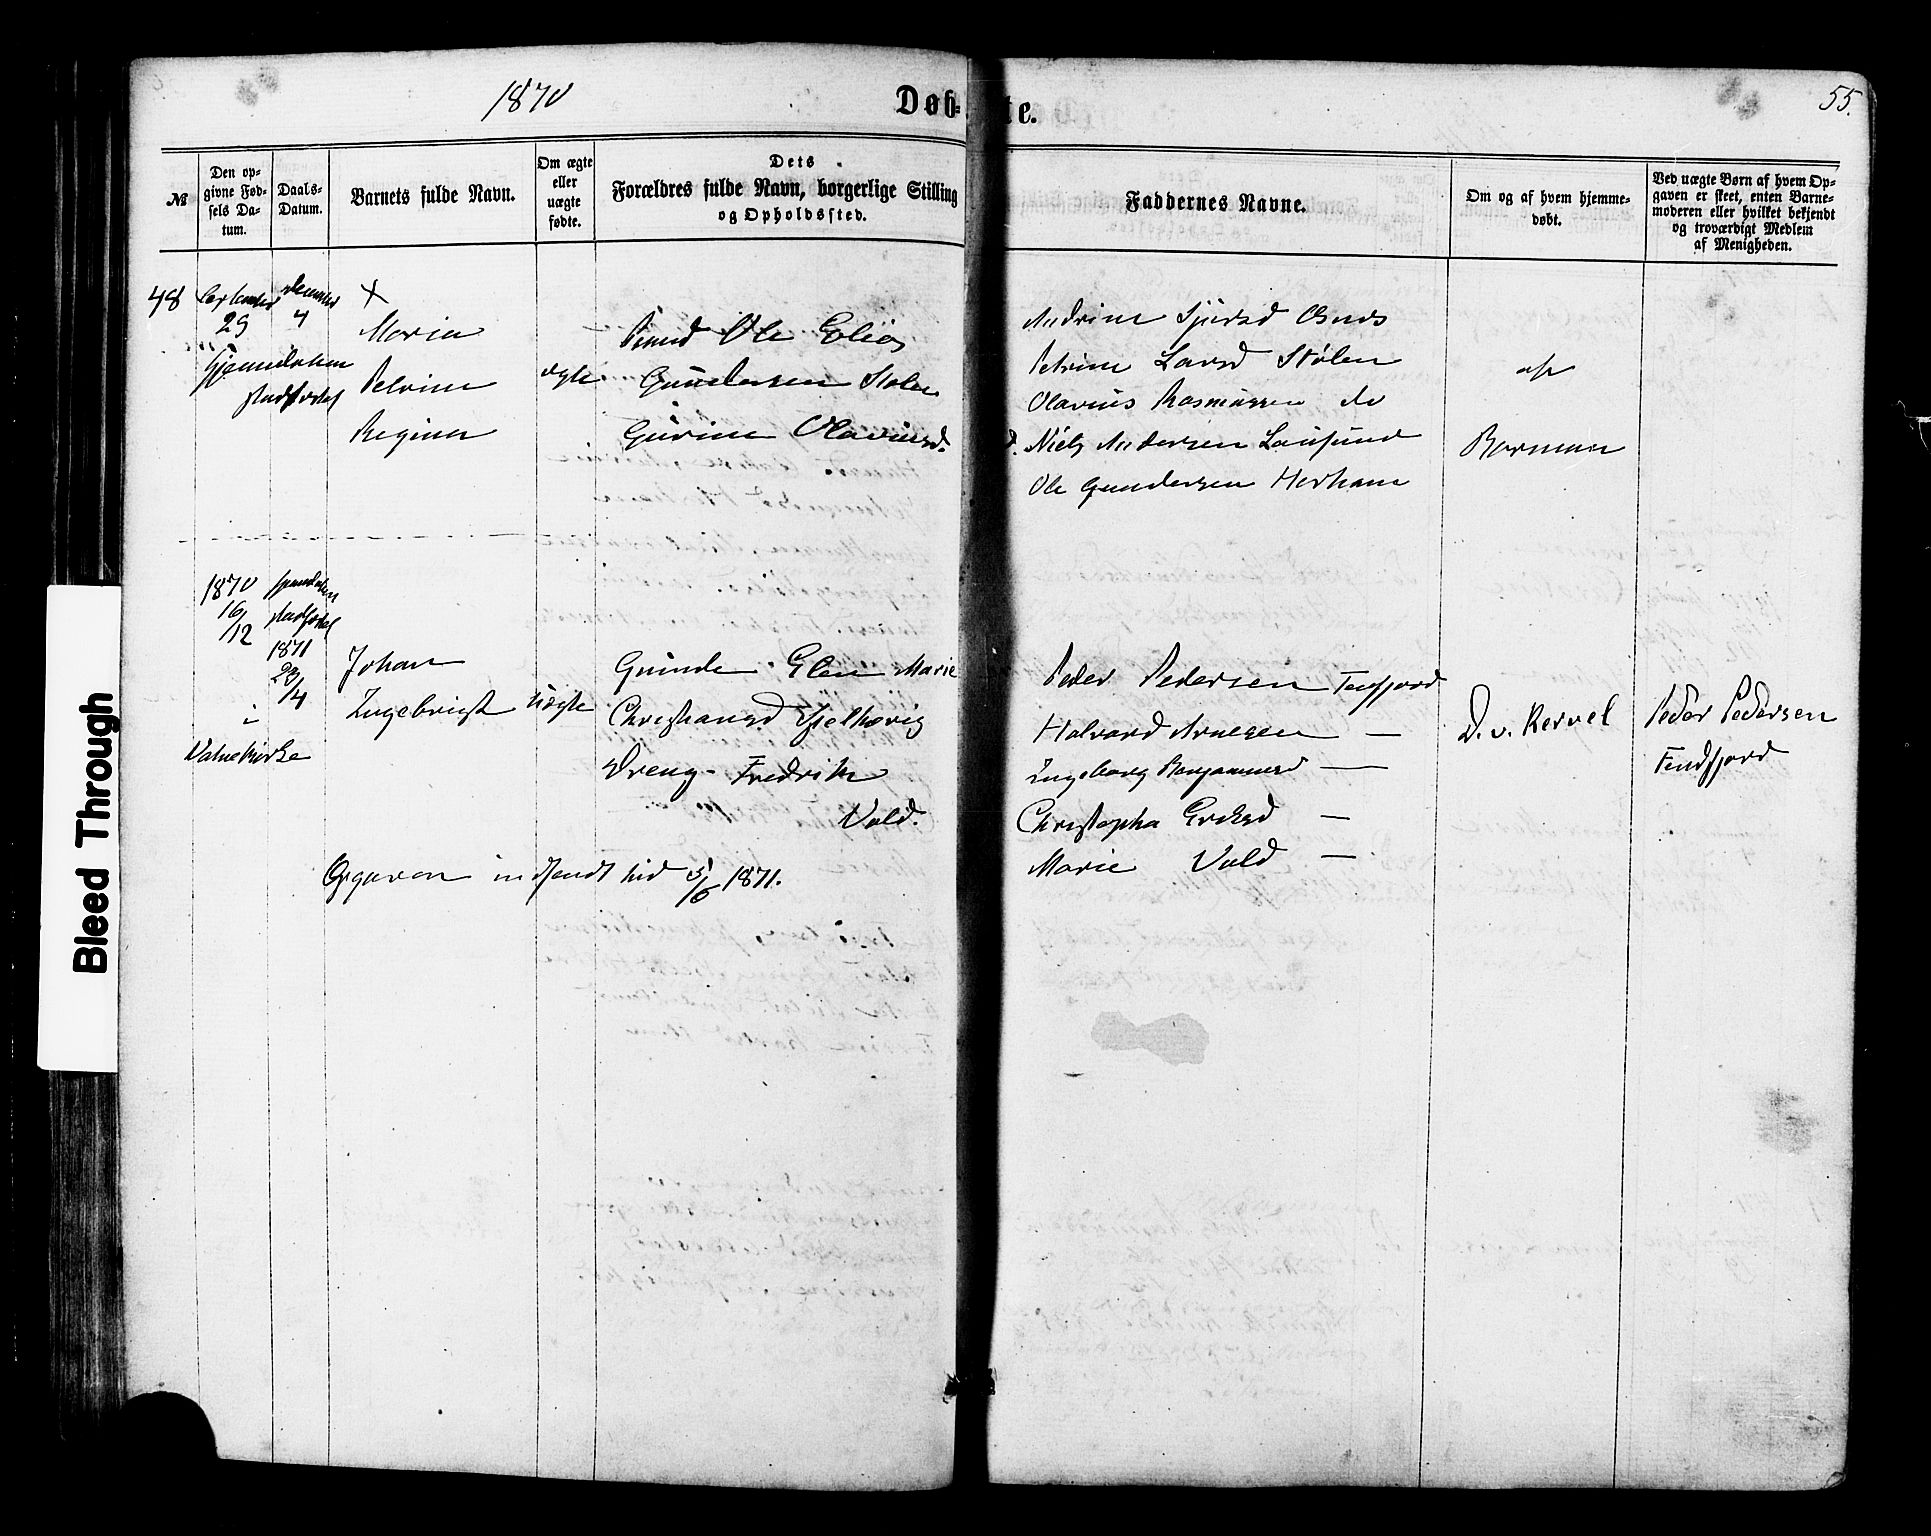 1870
Døb-te.
55.
№
Den op-
givne Fød-
sels Da-
tum.
Daabs-
Datum.
Barnets fulde Navn.
Om ægte
eller
uægte
fødte.
Dets
Forældres fulde Navn, borgerlige Stilling
og Opholdssted.
Faddernes Navne.
Om og af hvem hjemme-
døbt.
Ved uægte Børn af hvem Op-
gaven er skeet, enten Barne-
moderen eller hvilket bekjendt
og troværdigt Medlem
af Menigheden.
48
September
29
4
Hjemmedaaben
stadfæstet
Maria
Petrine
Regina
ægte
Ole Elias
Gundersen Stølen
Gurine Olavinsd.
Andrine Sjursd Osnes
Petrine Larsd Stølen
Olavius Rasmussen do
Niels Andersen Lausund
Ole Gundersen Harham
af
1870
16/12
i
Vatnekirke
hjemmedaaben
stadfæstet
1871
23/4
Johan
Ingebrigt
uægte
Elen Marie
Christiansd Hjelkevig
Dreng Fredrik
Vold.
Peder Pedersen Tenfjord
Halvard Arnesen —
Ingeborg Benjaminsd —
Christopha Eriksd —
Marie Vold —
D. v. Kervel
Peder Pedersen
Tendfjord
Opgaven indsendt hid 5/6 1871.
Bleed Through